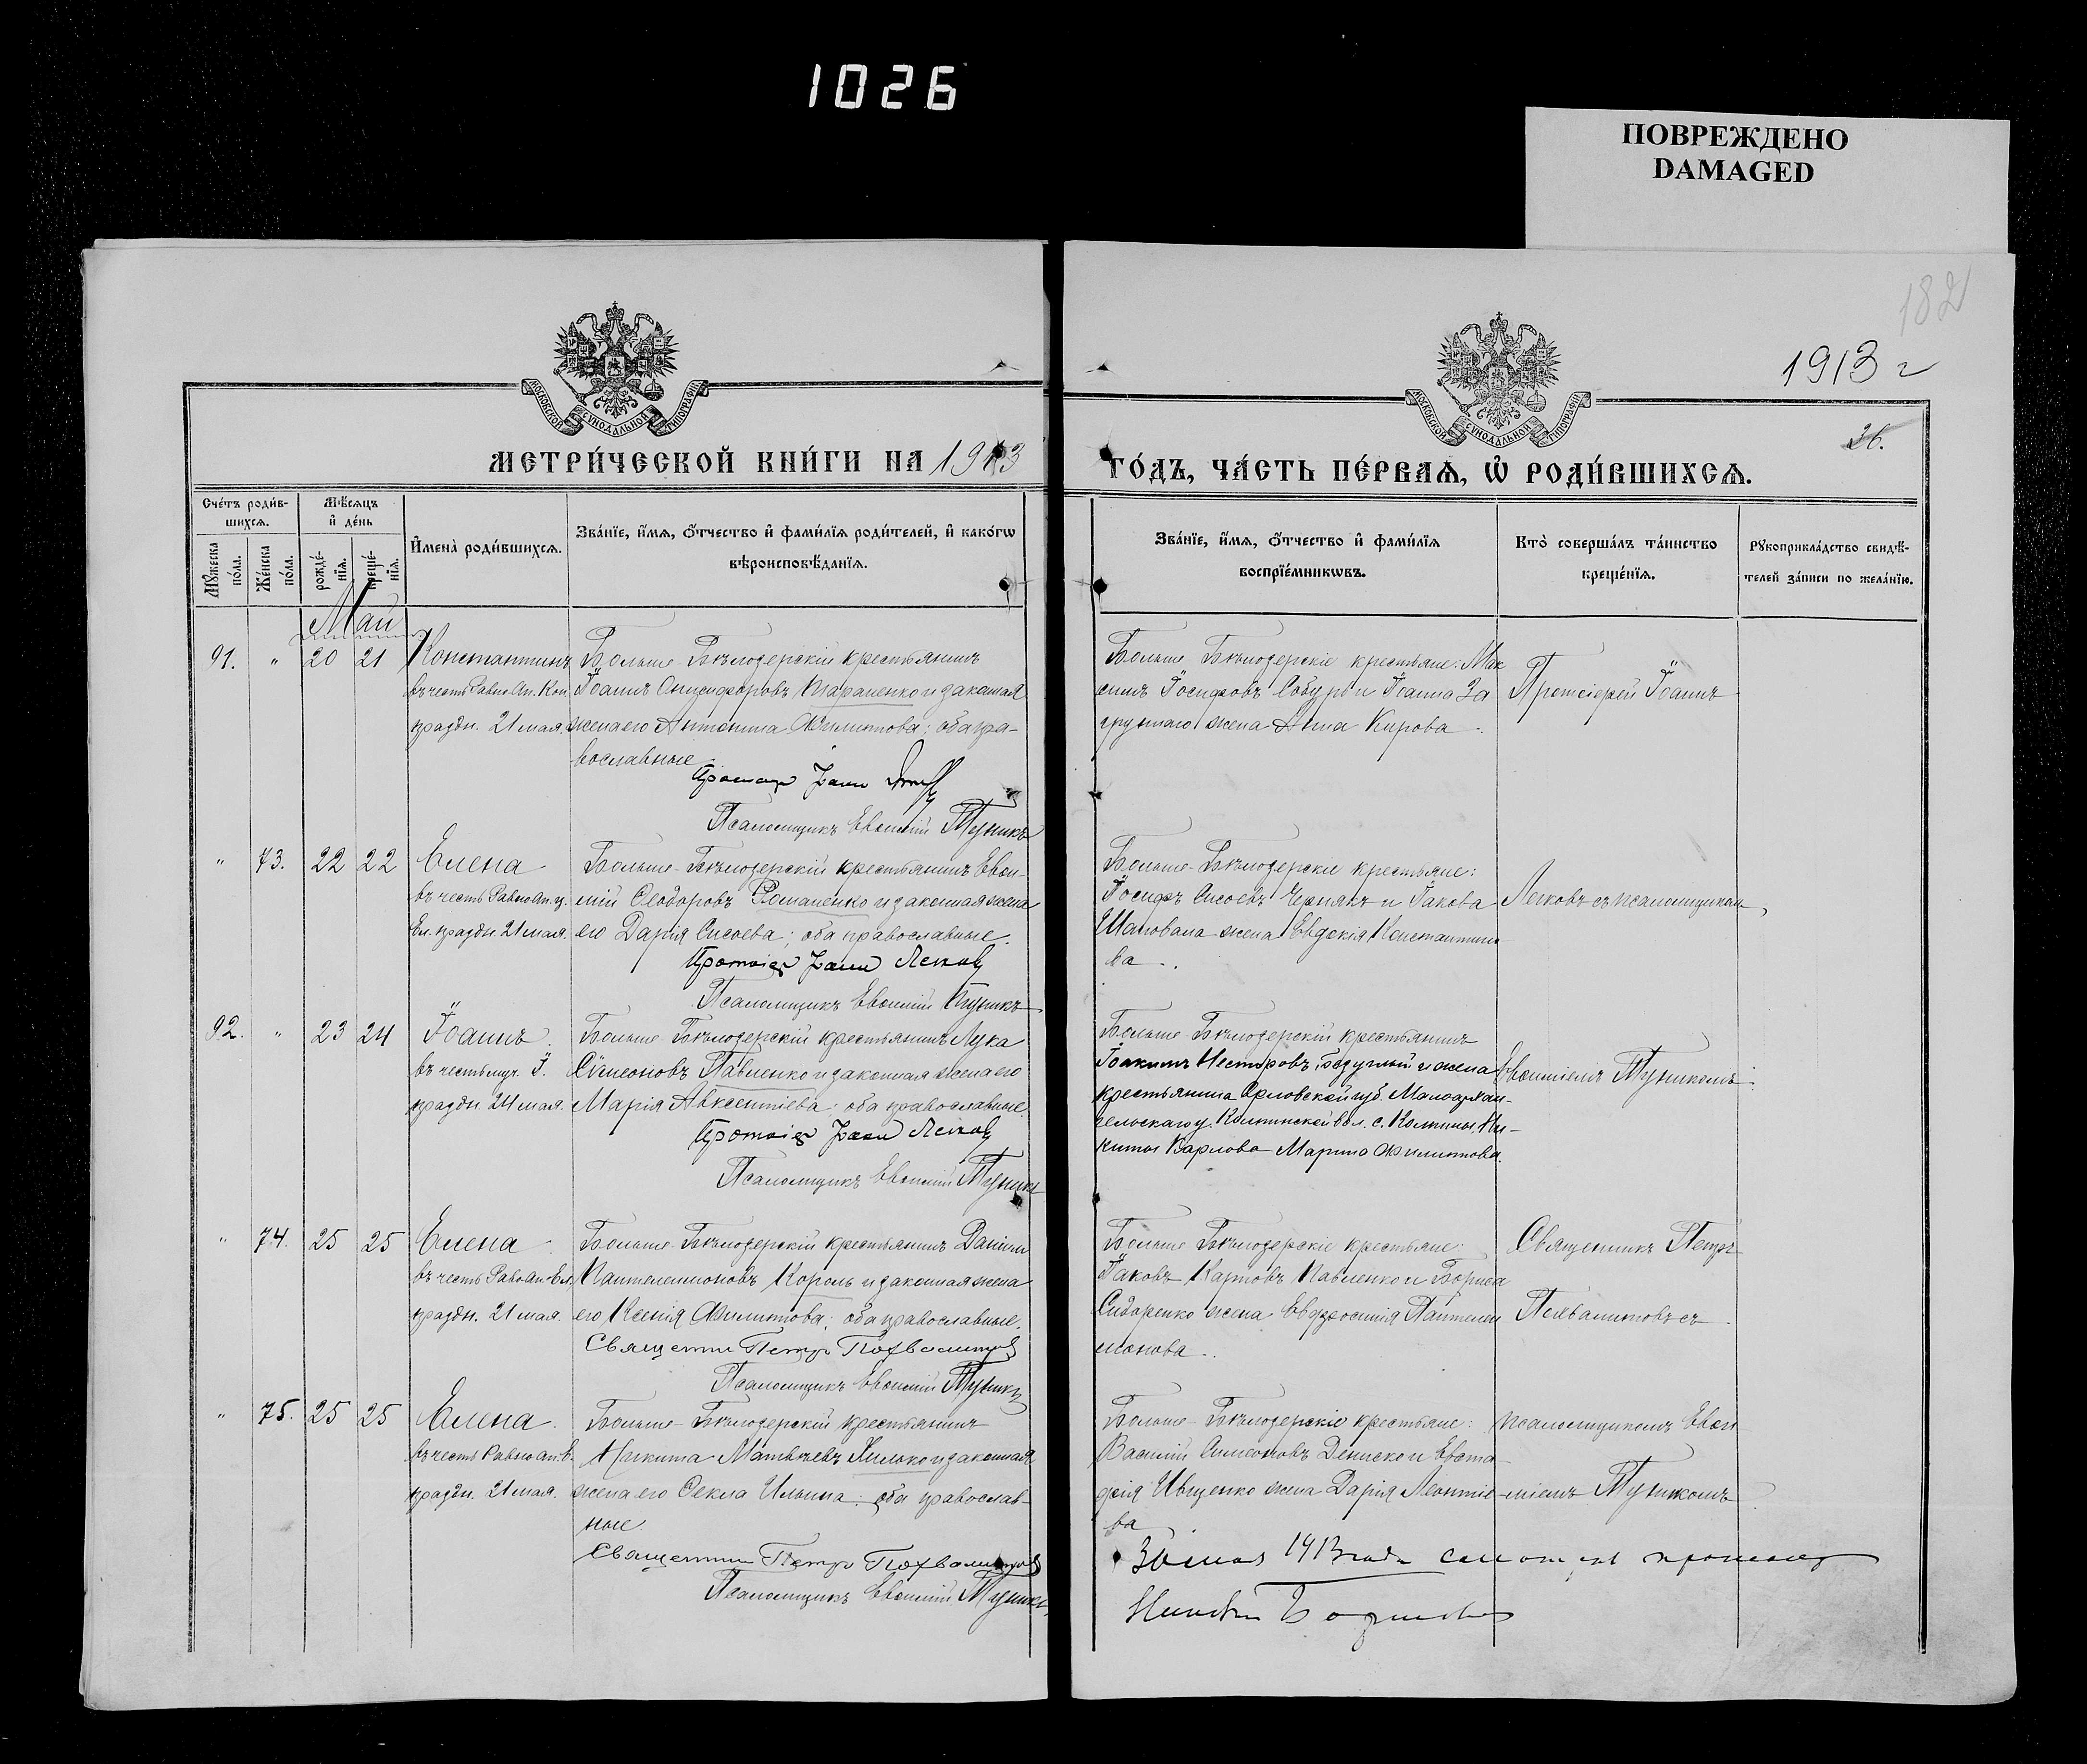 1026
ПОВРЕЖДЕНО
DAMAGED
182
1913 г
26.
МОСКОВСКОЙ СѴНОДАЛЬНОЙ ТИПОГРАФІИ
МОСКОВСКОЙ СѴНОДАЛЬНОЙ ТИПОГРАФІИ
МЕТРИ́ЧЕСКОЙ КНИ́ГИ НА 1913
ГО́ДЪ, ЧА́СТЬ ПЕ́РВАѦ, Ѡ҆ РОДИ́ВШИХСѦ.
Сче́тъ роди́в-
шихсѧ.
Мꙋ́жеска по́ла.
Же́нска по́ла.
Мѣ́сѧцъ
и҆ де́нь
рожде́-
нїѧ.
креще́-
нїѧ.
И҆мена̀ роди́вшихсѧ.
Зва́нїе, и҆́мѧ, ѻ҆́тчество и҆ фами́лїѧ роди́телей, и҆ како́гѡ
вѣроисповѣ́данїѧ.
Зва́нїе, и҆́мѧ, ѻ҆́тчество и҆ фами́лїѧ
воспрїе́мникѡвъ.
Кто̀ соверша́лъ та́инство
креще́нїѧ.
Рꙋкоприкла́дство свидѣ́-
телей за́писи по жела́нїю.
Май
91. " 20 21 Константинъ
въ честь Равноап. Кон.
праздн. 21 мая.
Больше-Бѣлозерскій крестьянинъ
Іоаннъ Онисифоровъ Тараненко и законная
жена его Антонина Филиппова; оба пра-
вославные.
Псаломщикъ Евѳимій Туникъ
Больше-Бѣлозерскіе крестьяне: Мак
симъ Іосифовъ Собуръ и Іоанна За
грушнаго жена Анна Кирова.
Протоіерей Іоаннъ
" 73. 22 22 Елена
въ честь Равноап. ц.
Ел. праздн. 21 мая.
Больше-Бѣлозерскій крестьянинъ Евѳи-
мій Ѳеодоровъ Романенко и законная жена
его Дарія Сисоева; оба православные.
Протоіер Іоанн Легков
Псаломщикъ Евѳимій Туникъ
Больше-Бѣлозерскіе крестьяне:
Іосифъ Сисоевъ Чернякъ и Іакова
Шаповала жена Евдокія Константино
ва.
Легковъ съ псаломщиком
92. " 23 24 Іоаннъ
въ честь муч. І.
праздн. 24 мая.
Больше-Бѣлозерскій крестьянинъ Лука
Симеоновъ Павленко и законная жена его
Марія Авксентіева; оба православные.
Протоіер Іоанн Легков
Псаломщикъ Евѳимій Туникъ
Больше-Бѣлозерскій крестьянинъ
Іоакимъ Несторовъ Бедушый и жена
крестьянина Орловской губ. Малоархан-
гельскаго у. Колпинской вол. с. Колпины, Ни-
киты Карлова Марина Филиппова.
Евѳиміемъ Туникомъ.
" 74. 25 25 Елена
въ честь Равноап. Ел.
праздн. 21 мая.
Больше-Бѣлозерскій крестьянинъ Даніилъ
Пантелеимоновъ Король и законная жена
его Ксенія Филиппова; оба православные.
Священник Петръ Похвалитов
Псаломщикъ Евѳимій Туникъ
Больше-Бѣлозерскіе крестьяне:
Іаковъ Карповъ Павленко и Бориса
Сидоренко жена Евдокія Пантелеи
монова.
Священникъ Петръ
Похвалитовъ съ
" 75. 25 25 Елена.
въ честь Равноап. Е.
праздн. 21 мая.
Больше-Бѣлозерскій крестьянинъ
Никита Матвѣевъ Хилько и законная
жена его Ѳекла Ильина; оба православ-
ные.
Священник Петръ Похвалитов
Псаломщикъ Евѳимій Туникъ
Больше-Бѣлозерскіе крестьяне:
Василій Симеоновъ Дениско и Евста
фія Ивщенко жена Дарія Леонтіе
ва
псаломщикомъ Евѳи
міемъ Туникомъ
30 мая 1913 года